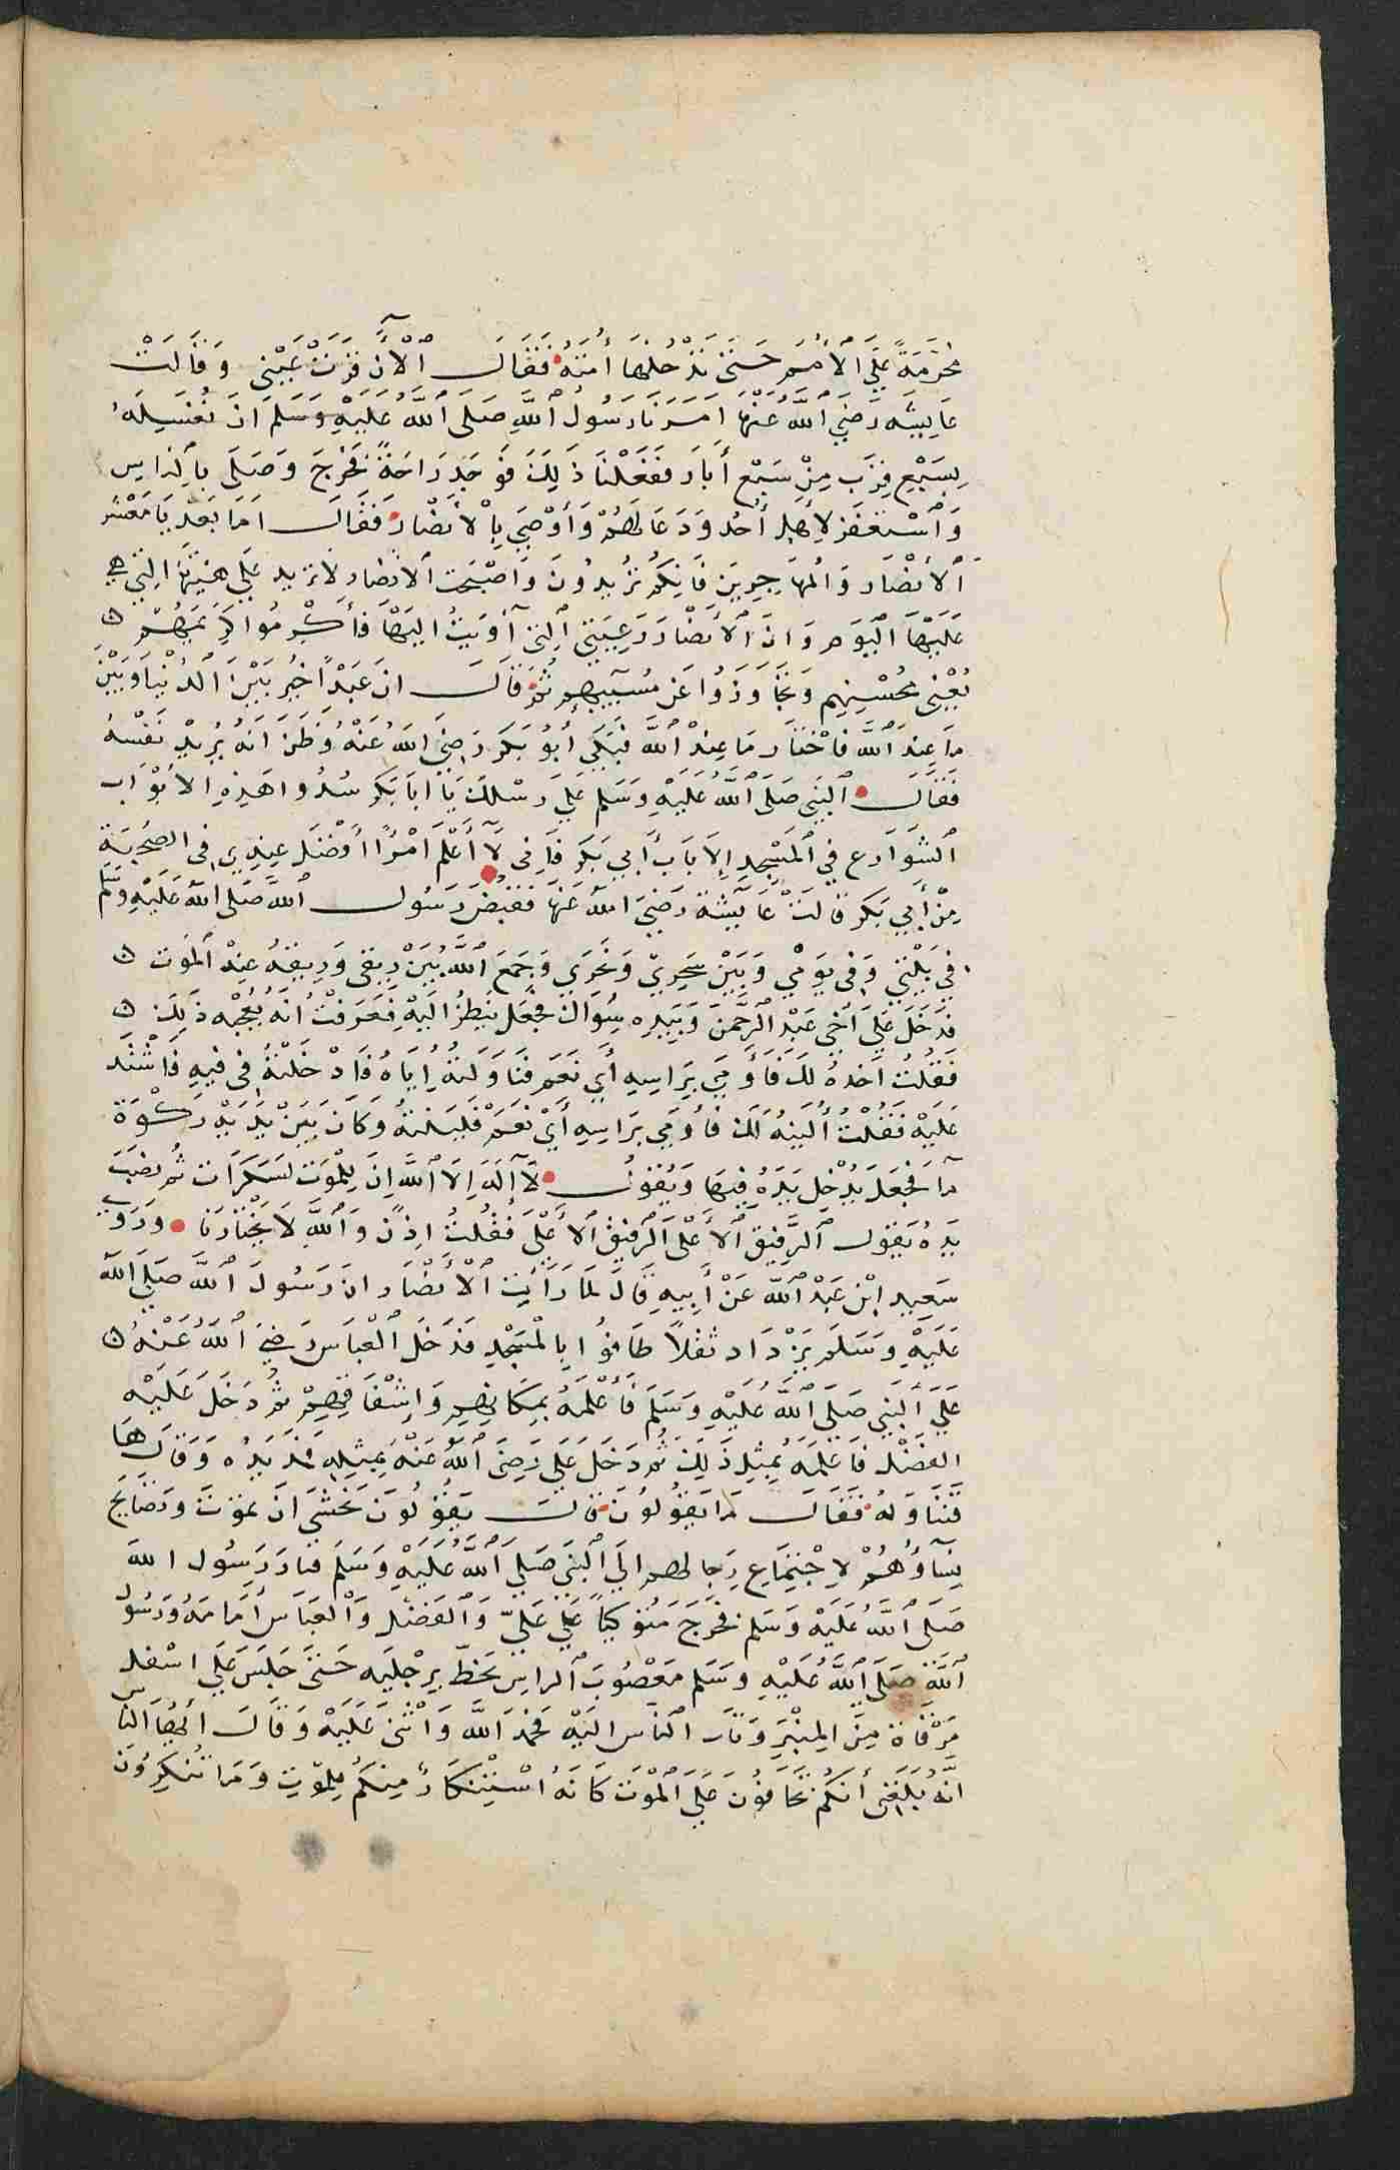 مُحَرَّمَةً عَلَى ٱلْأُمَمِ حَتَّى تَدْخُلَهَا أُمَّتُهُ فَقَالَ ٱلْآنَ قَرَّتْ عَيْنِي وَقَالَتْ
عَايِشَه رَضِيَ ٱللَّهُ عَنْهَا اَمَرَنَا رَسُولُ ٱللَّهِ صَلَى ٱللَّهُ عَلَيْهِ وَسَلَمَ اَنْ نُغْسِلَهُ
بِسَبْعِ قِرَبٍ مِنْ سَبْعِ أَبَارٍ فَفَعَلْنَا ذَلِكَ فَوَجَدَ رَاحَةً فَخَرَجَ وَصَلَى بِٱلنَاسِ
وَٱسْتَغْفَرَ لِأَهِلِ أُحُد وَدَعَا لَهُمْ وَأَوْصَى بِالْأَنْصَارِ فَقَالَ اَمَا بَعْد يَا مَعْشَر
ٱلأَنْصَارِ وَالمُهَاجِرِينَ فَإِنَكُمْ تَزِيدُونَ وَاَصْبَحَت ٱلأَنْصَار لاَ تَزِيد عَلَى هَيْئَتِهَا الَتِي هِيَ
عَلَيْهَا ٱليَوم وَانَ ٱلأَنْصَارَ عَيْبَتِي ٱلَتِي آوَيْتُ اِلَيْهَا فَأَكْرِمُوا كَرِيمَهُمْ
يَعْنِي مُحْسِنِهِم وَتَجَاوَزُوا عَن مُسِيئِهِمْ ثُمَ قَالَ اِنَ عَبْداً خُيِّرَ بَيْنَ الدُنْيَا وَبَيْنَ
مَا عِندَ ٱللَّه فَاخْتَارَ مَا عِنْدَ ٱللَّه فَبَكَى أَبُو بَكرٍ رَضِيَ اللَهُ عَنْهُ وَظَنَ انَهُ يُرِيدُ نَفْسَهُ
فَقَالَ ٱلنَبِي صَلَى ٱللَّهُ عَلَيْهِ وَسَلَم عَلَى رِسْلِكَ يَا اَبَا بَكر سُدُوا هَذِهِ الأَبْوَاب
ٱلشَوَارِع فِي ٱلمَسْجِدِ إِلاَ بَابَ أَبِي بَكرٍ فَإِنِي لَا أَعْلَمُ امْرًا أَفْضَلَ عِنْدِي فِي الصُحْبَةِ
مِنْ أَبِي بَكرٍ قَالَتْ عَائِشَة رَضِيَ اللّهُ عَنهَا فَقُبِضَ رَسُول ٱللَّه صَلَى اللّهُ عَلَيْهِ وَسَلَّم
فِي بَيْتِي وَفِي يَوْمِي وَبَيْنَ سَحْرِي وَنَحْرِي وَجَمَعَ ٱللَّهُ بَيْنَ رِيقِي وَرِيقِهُ عِنْدَ ٱلمَوْت
فَدَخَلَ عَلَيَّ أَخِي عَبْد ٱلرَّحْمَن وَبِيَدِه سِوَاك فَجَعَلَ يَنْظُرُ اِلَيْهِ فَعَرَفْتُ اَنَهُ يُعْجِبُه ذَلِكَ
فَقُلتُ آخُذُهُ لَكَ فَأَوْمَى بِرَاسِهِ أَي نَعَم فَنَاوَلتُهُ إِيَاهُ فَأَدْخَلتُهُ فِي فِيهِ فَاشْتَدَ
عَلَيْهِ فَقُلْتُ أُلَيِّنُهُ لَكَ فَأَوْمَى بِرَاسِهِ أَيْ نَعَمْ فَلَيَنْتُهُ وَكَانَ بَيْنَ يَدَيْهِ رَكْوَة
مَا فَجَعَلَ يُدْخِل يَدَهُ فِيهَا وَيَقُولُ لَا إِلَهَ إِلَا ٱللَّه إِنَ لِلْمَوْتِ لَسَكَرَات ثُمَ نَصَبَ
يَدِهُ يَقُول ٱلرَّفِيقَ ٱلأَعْلَى ٱلرَفِيقَ ٱلأَعْلَى فَقُلتُ اِذَنْ وَٱللَّهِ لاَ يَخْتَارنَا وَرَوَى
سَعِيد ابْن عَبْد ٱللَّه عَنْ أَبِيهِ قَالَ لَمَا رَأَيَت ٱلْأَنْصَار اَنَ رَسُولَ ٱللَّه صَلَى اللّه
عَلَيْهِ وَسَلَم يَزْدَاد ثقلاً طَافُوا بِالْمَسْجِدِ فَدَخَلَ ٱلعَبَاس رَضِيَ ٱللَّهُ عَنْهُ
عَلَى ٱلنَبِي صَلَى ٱللَّهُ عَلَيْهِ وَسَلَمَ فَأَعْلَمَهُ بِمَكَانِهِم وَاِشْفَاقِهِمْ ثُمَ دَخَلَ عَلَيْه
الفَضْل فَاَعْلَمَهُ بِمِثْلِ ذَلِكَ ثُمَ دَخَلَ عَلَى رَضِيَ ٱللَّهُ عَنْهُ بِمِثْلِهِ فَمَدَ يَدَهُ وَقَالَ هَا
فَتَنَاوَلُهُ فَقَالَ مَا يَقُولُونَ قَالَت يَقُولُونَ نَخْشَى اَنْ تَمُوتَ وَتَصَايَح
نِسَآؤُهُمْ لاِجْتِمَاعِ رِجَالهم اِلَى ٱلنَبِي صَلَى ٱللَّهُ عَلَيْهِ وَسَلَمَ فثَارَ رَسُول اللَه
صَلَى ٱللَّهُ عَلَيْهِ وَسَلَم فَخَرَجَ مُتَوَكِياً عَلَى عَلِيّ وَٱلفَضْل وَٱلعَبَاس أَمَامَهُ وَرَسُول
ٱللَّه صَلَى ٱللَّهُ عَلَيْهِ وَسَلَم مَعْصُوبَ ٱلرَاس يَخطّ بِرِجْلَيه حَتَى جَلَسَ عَلَى اسْفَل
مَرْقَاة مِنَ المِنْبَرِ وَثَار ٱلنَاس اِلَيْهِ فَحَمِدَ ٱللَّه وَاَثْنَى عَلَيْه وَقَالَ أَيُهَا النَاس
انَّهُ بَلَغَنِي أَنَكُم تَخَافُونَ عَلَيَّ ٱلمَوْت كَانَهُ اسْتِنْكَارٌ مِنكُم لِلمَوْتِ وَمَا تُنْكِرُونَ